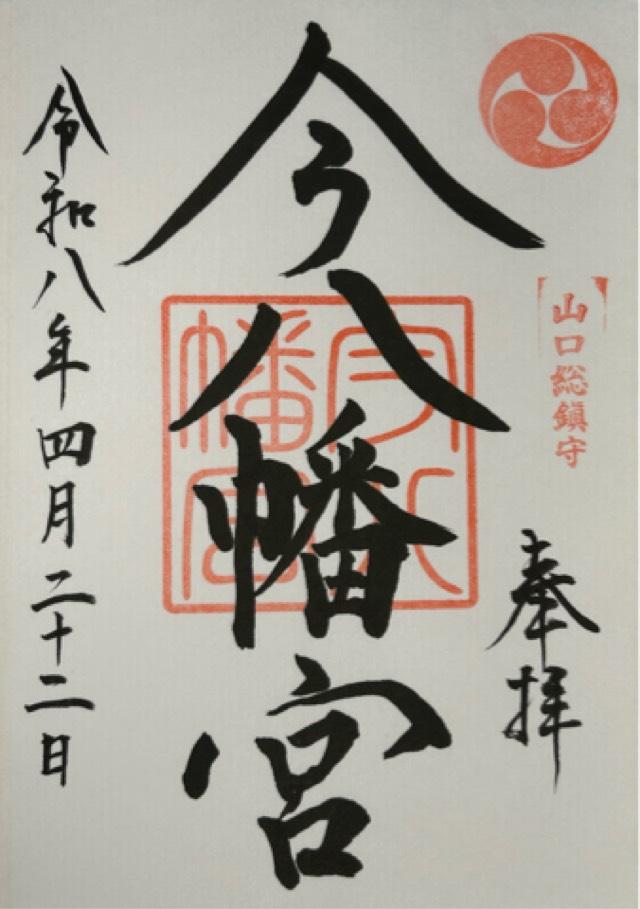 山口総鎮守
奉拝
今八幡宮
今八幡宮
令和八年四月二十二日